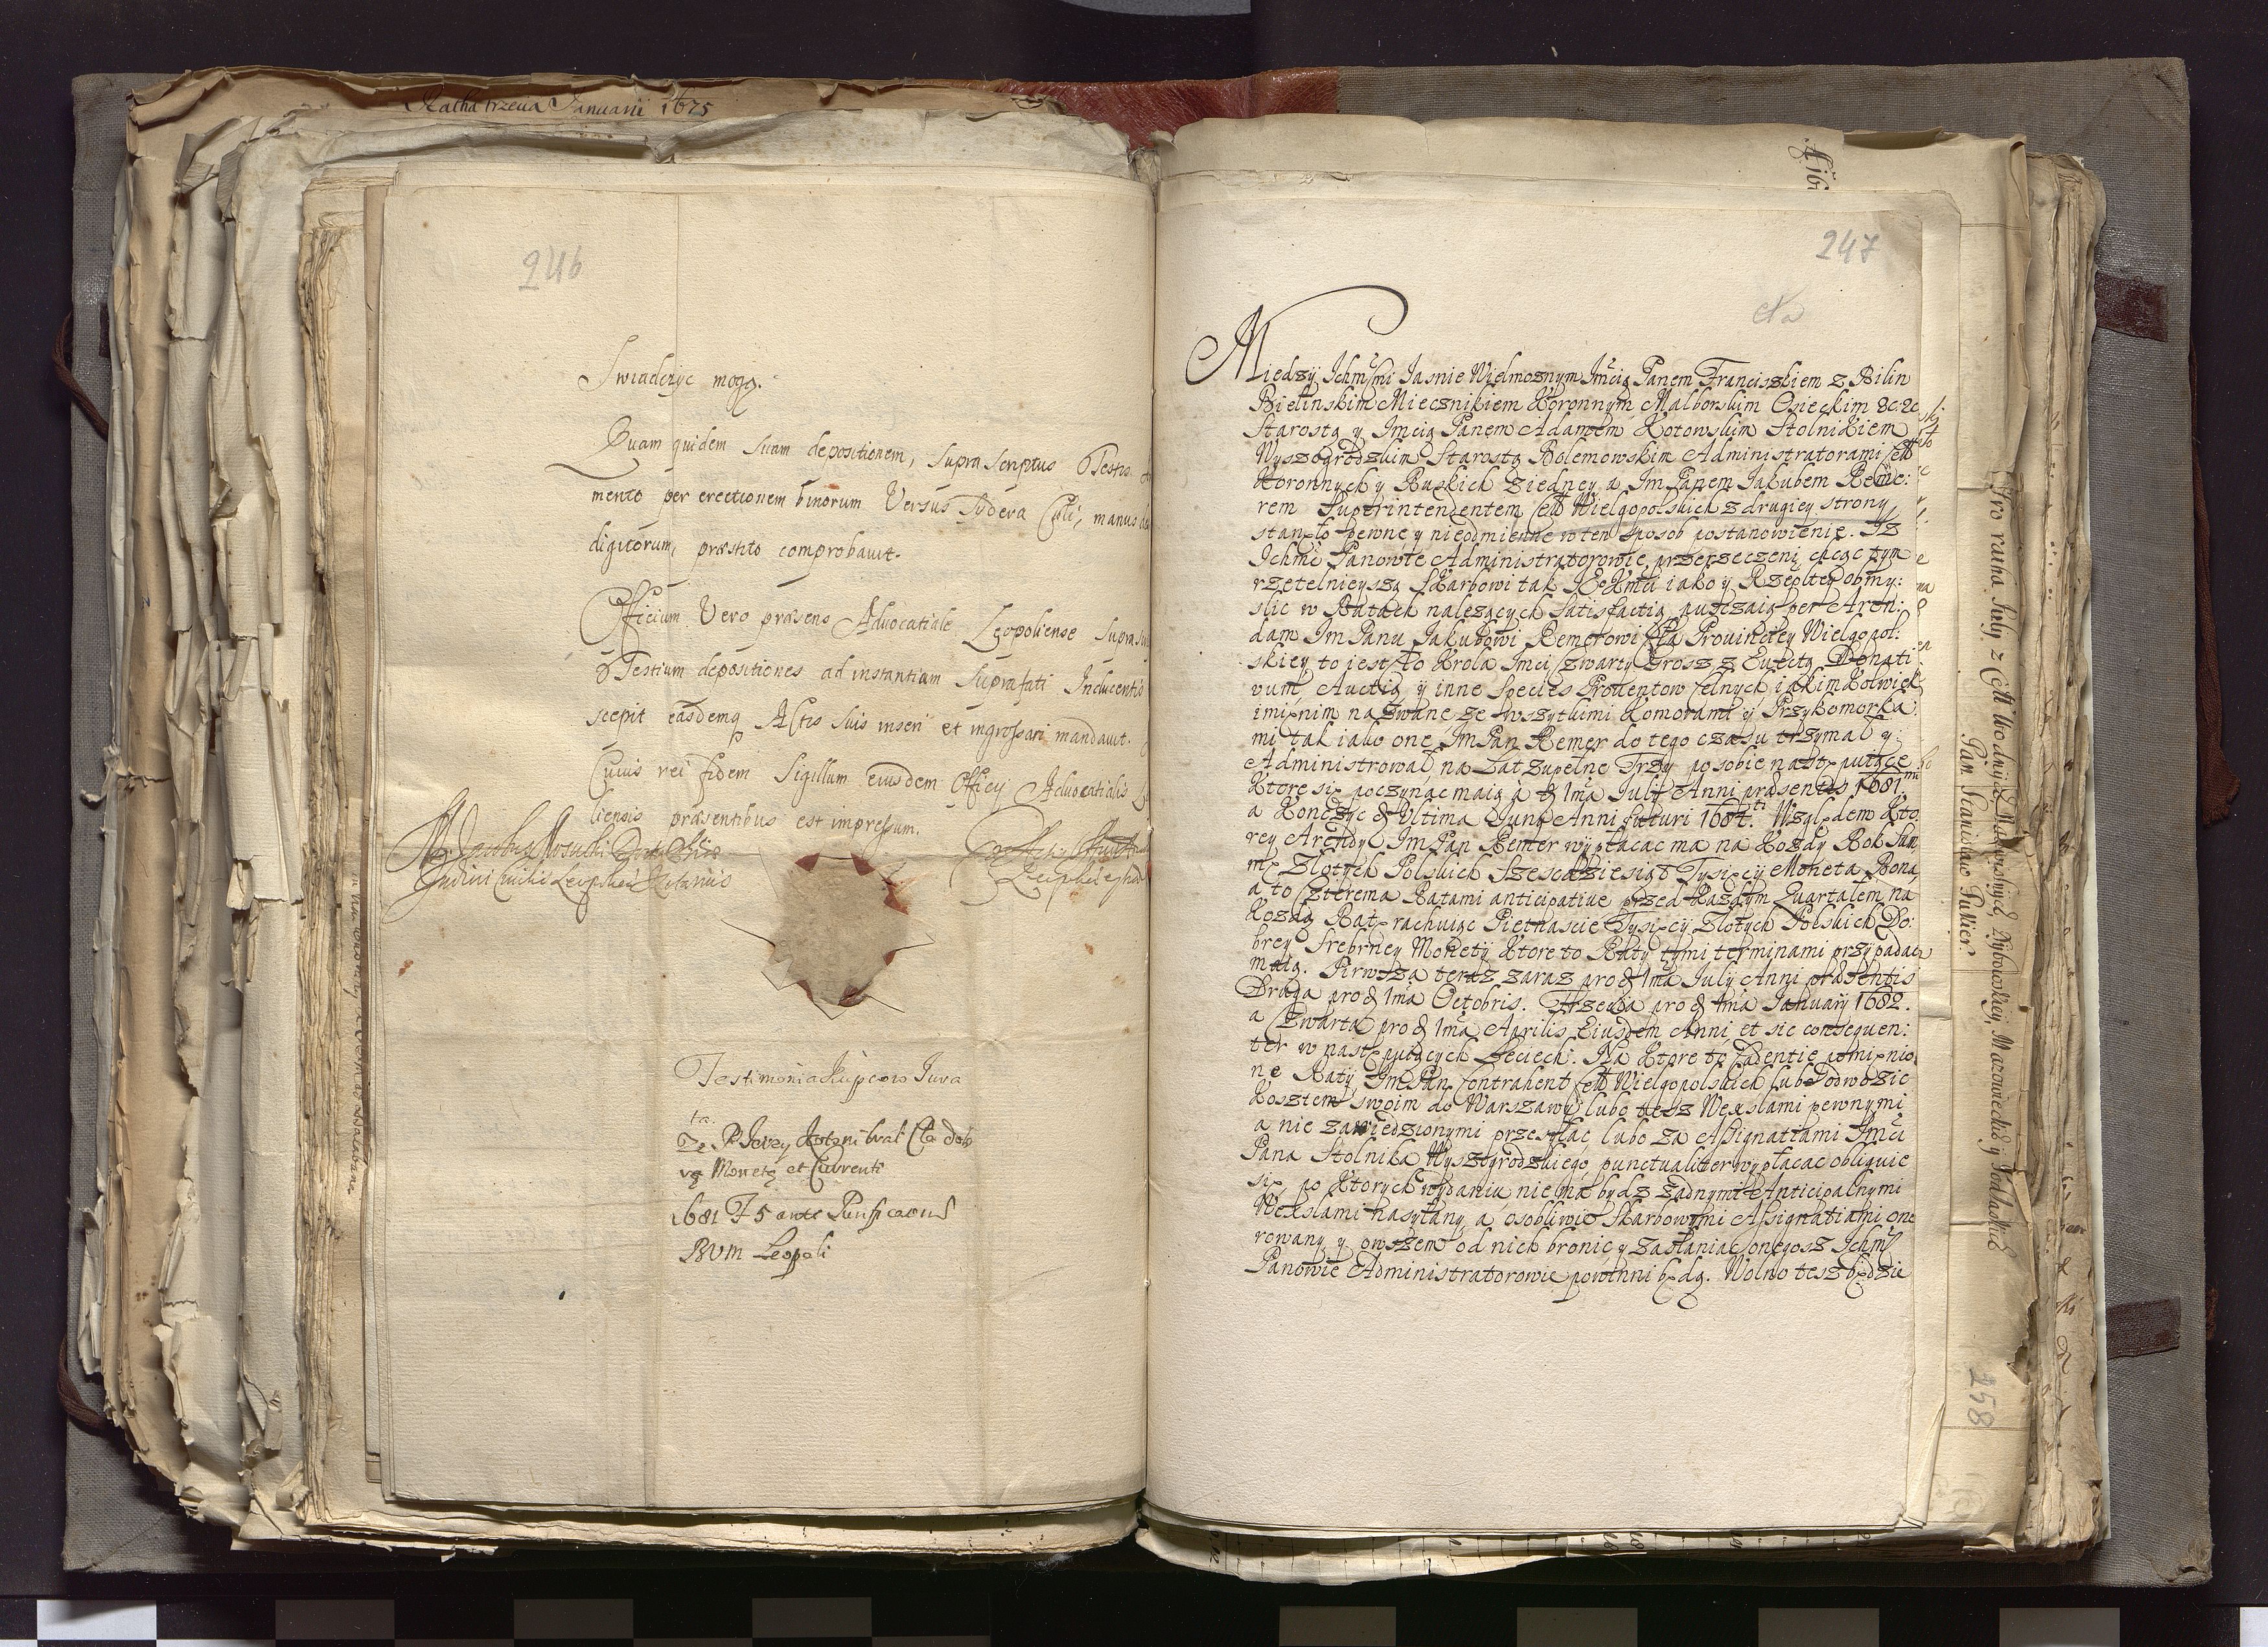 Ratha trzecia Januarii 1675
246
Swiadczyc mogą.
Quam quidem suam depositionem, supra scriptus Testis
mento per erectionem binorum Versus Sydera Cæli, manus
digitorum, præstito comprobavit.
Officium Vero præsens Advocatiale Leopoliense supra
Testium depositiones ad instantiam suprafati Inducentis
scepit easdemq Actis suis inseri et ingrossari mandavit.
Cuius rei fidem Sigillum eiusdem Officij Advocatialis
liensis præsentibus est impressum.
Testimonia Kupcow Jura
ta.
Ze P. Jerzy brał Cła dob
rą Monetą et Currenti
1681 F 5 ante Purificaoni
BVM Leopoli
247
Cła
Między Ichmćmi Jasnie Wielmoznym Jmcią Panem Franciszkiem z Bilin
Bielinskim Miecznikiem Koronnym Malborskim Osieckim &c &c
Starostą y Jmcią Panem Adamem Kotowskim Stolnikiem
Wyszogrodzkim Starostą Bolemowskim Administratorami Cełł
Koronnych y Ruskich z iedney a Im Panem Jakubem Reme:
rem Superintendentem Cełł Wielgopolskich z drugiey strony,
stanęło pewne y nieodmienne w ten sposob postanowienie. Iz
Ichmć Panowie Administratorowie przerzeczeni chcąc tym
rzetelnieyszą Skarbowi tak JKMći iako y Rzeplitey obmy:
slic w Ratach nalezących Satisfactią, puszczaią per Aren:
dam Im Panu Jakubowi Remerowi Cła Prouinciey Wielgopol:
skiey to iest Cło Krola Jmci, Czwarty Grosz z Evectą, Donati
vum, Auctią y inne Species Prouentow Celnych iakimkolwiek
imięnim nazwane ze wszytkimi Komorami y Przykomorka:
mi tak iako one Im Pan Remer do tego czasu trzymał y
Administrował, na Lat zupełne Trzy po sobie następuiące
Ktore się poczynac maią à d 1ma July Anni præsentis 1681mi
a Konczyc d Ultima Juny Anni futuri 1684ti. Względem Kto
rey Arendy, Im Pan Remer wypłacac ma na Kozdy Rok Sum
mę Złotych Polskich Szescdziesiąt Tysięcy Moneta Bona,
a to Czterema Ratami anticipative przed Kazdym Quartalem, na
Kozdą Ratę rachuiąc Pietnascie Tysięcy Złotych Polskich Do:
brey Srebrney Monety. Ktore to Raty tymi terminami przypadac
maią. Pirwsza teraz zaraz pro d 1ma July Anni præsentis
Druga pro d 1ma Octobris. Trzecia pro d 1ma January 1682.
a Czwarta pro d 1ma Aprilis Eiusdem Anni, et sic consequen:
ter w następuiących Leciech. Na Ktore to Cadentie pomięnio
ne Raty Im Pan Contrahent Cełł Wielgopolskich lubo Podwozic
Kosztem swoim do Warszawy, lubo tesz Wexslami pewnymi
a nie zawiedzionymi przesyłac, lubo za Assignatiami Jmći
Pana Stolnika Wyszogrodzkiego, punctualiter wypłacac obliguie
się, po Ktorych wydaniu, nie ma bydz zadnymi Anticipalnymi
Wexslami nasyłany, a osobliwie Skarbowymi Assignatiami one
rowany, y owszem od nich bronic y zasłaniac onegosz Ichmć
Panowie Administratorowie powinni będą. Wolno tesz będzie
Pro ratha July z Cełł Wodnych
Pan Stanisław
258